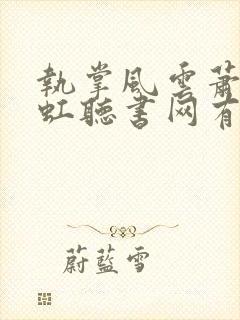 執掌風雲蕭
虹聽書网有
蔚藍雪